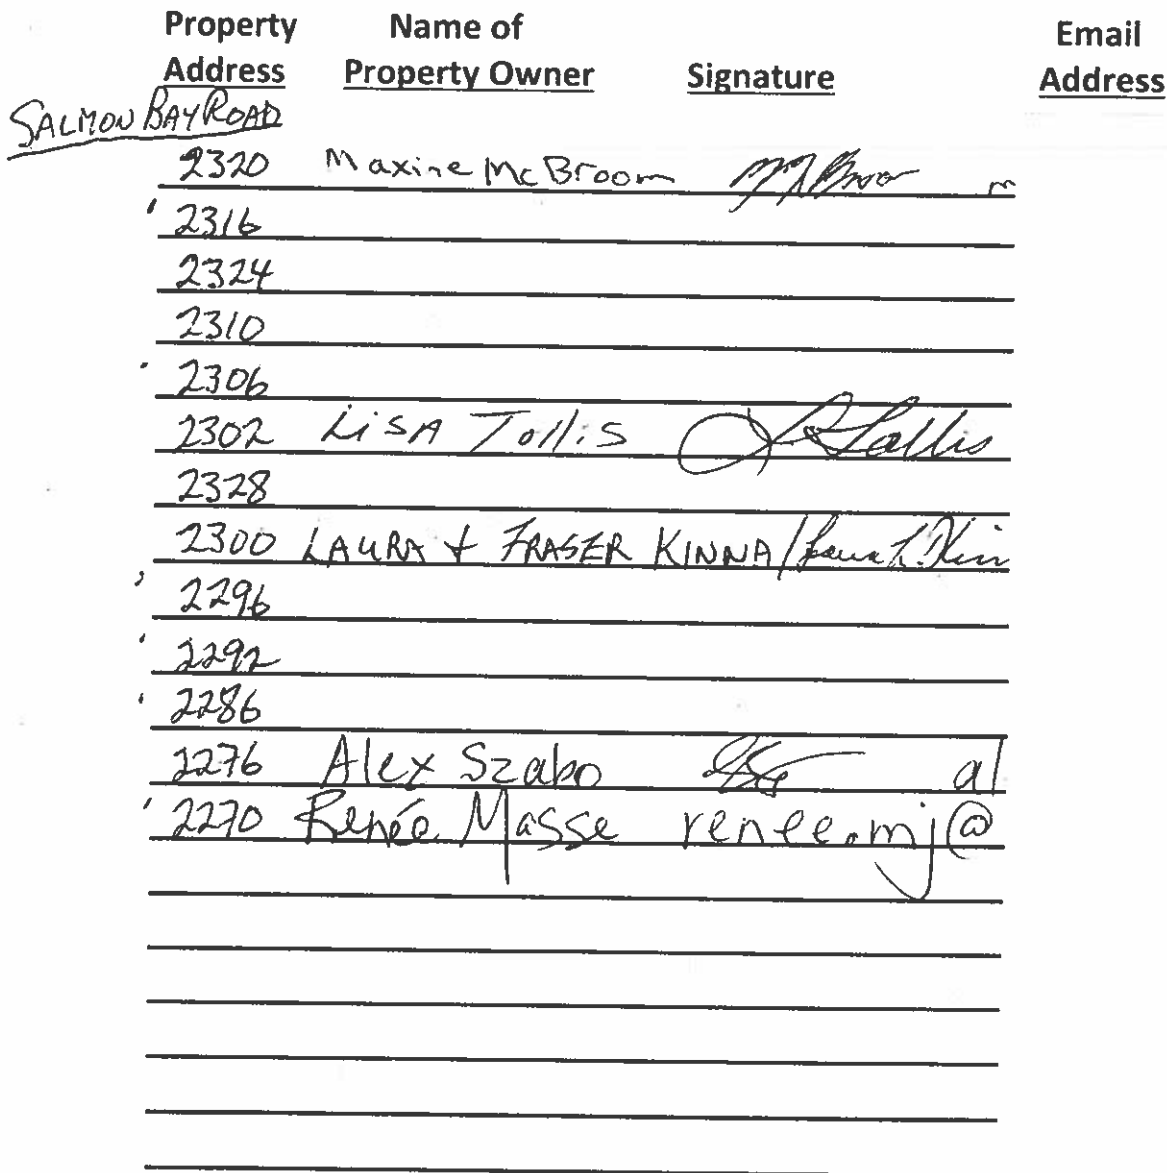 Property Name of Email
Address Property Owner Signature Address
SALMON BAY ROAD
2320 Maxine McBroom m
2316
2324
2310
2306
2302 LiSA Tollis
2328
2300 LAURA + FRASER KINNA /
2296
2292
2286
2276 Alex Szabo al
2270 Renée Masse renee.mj@